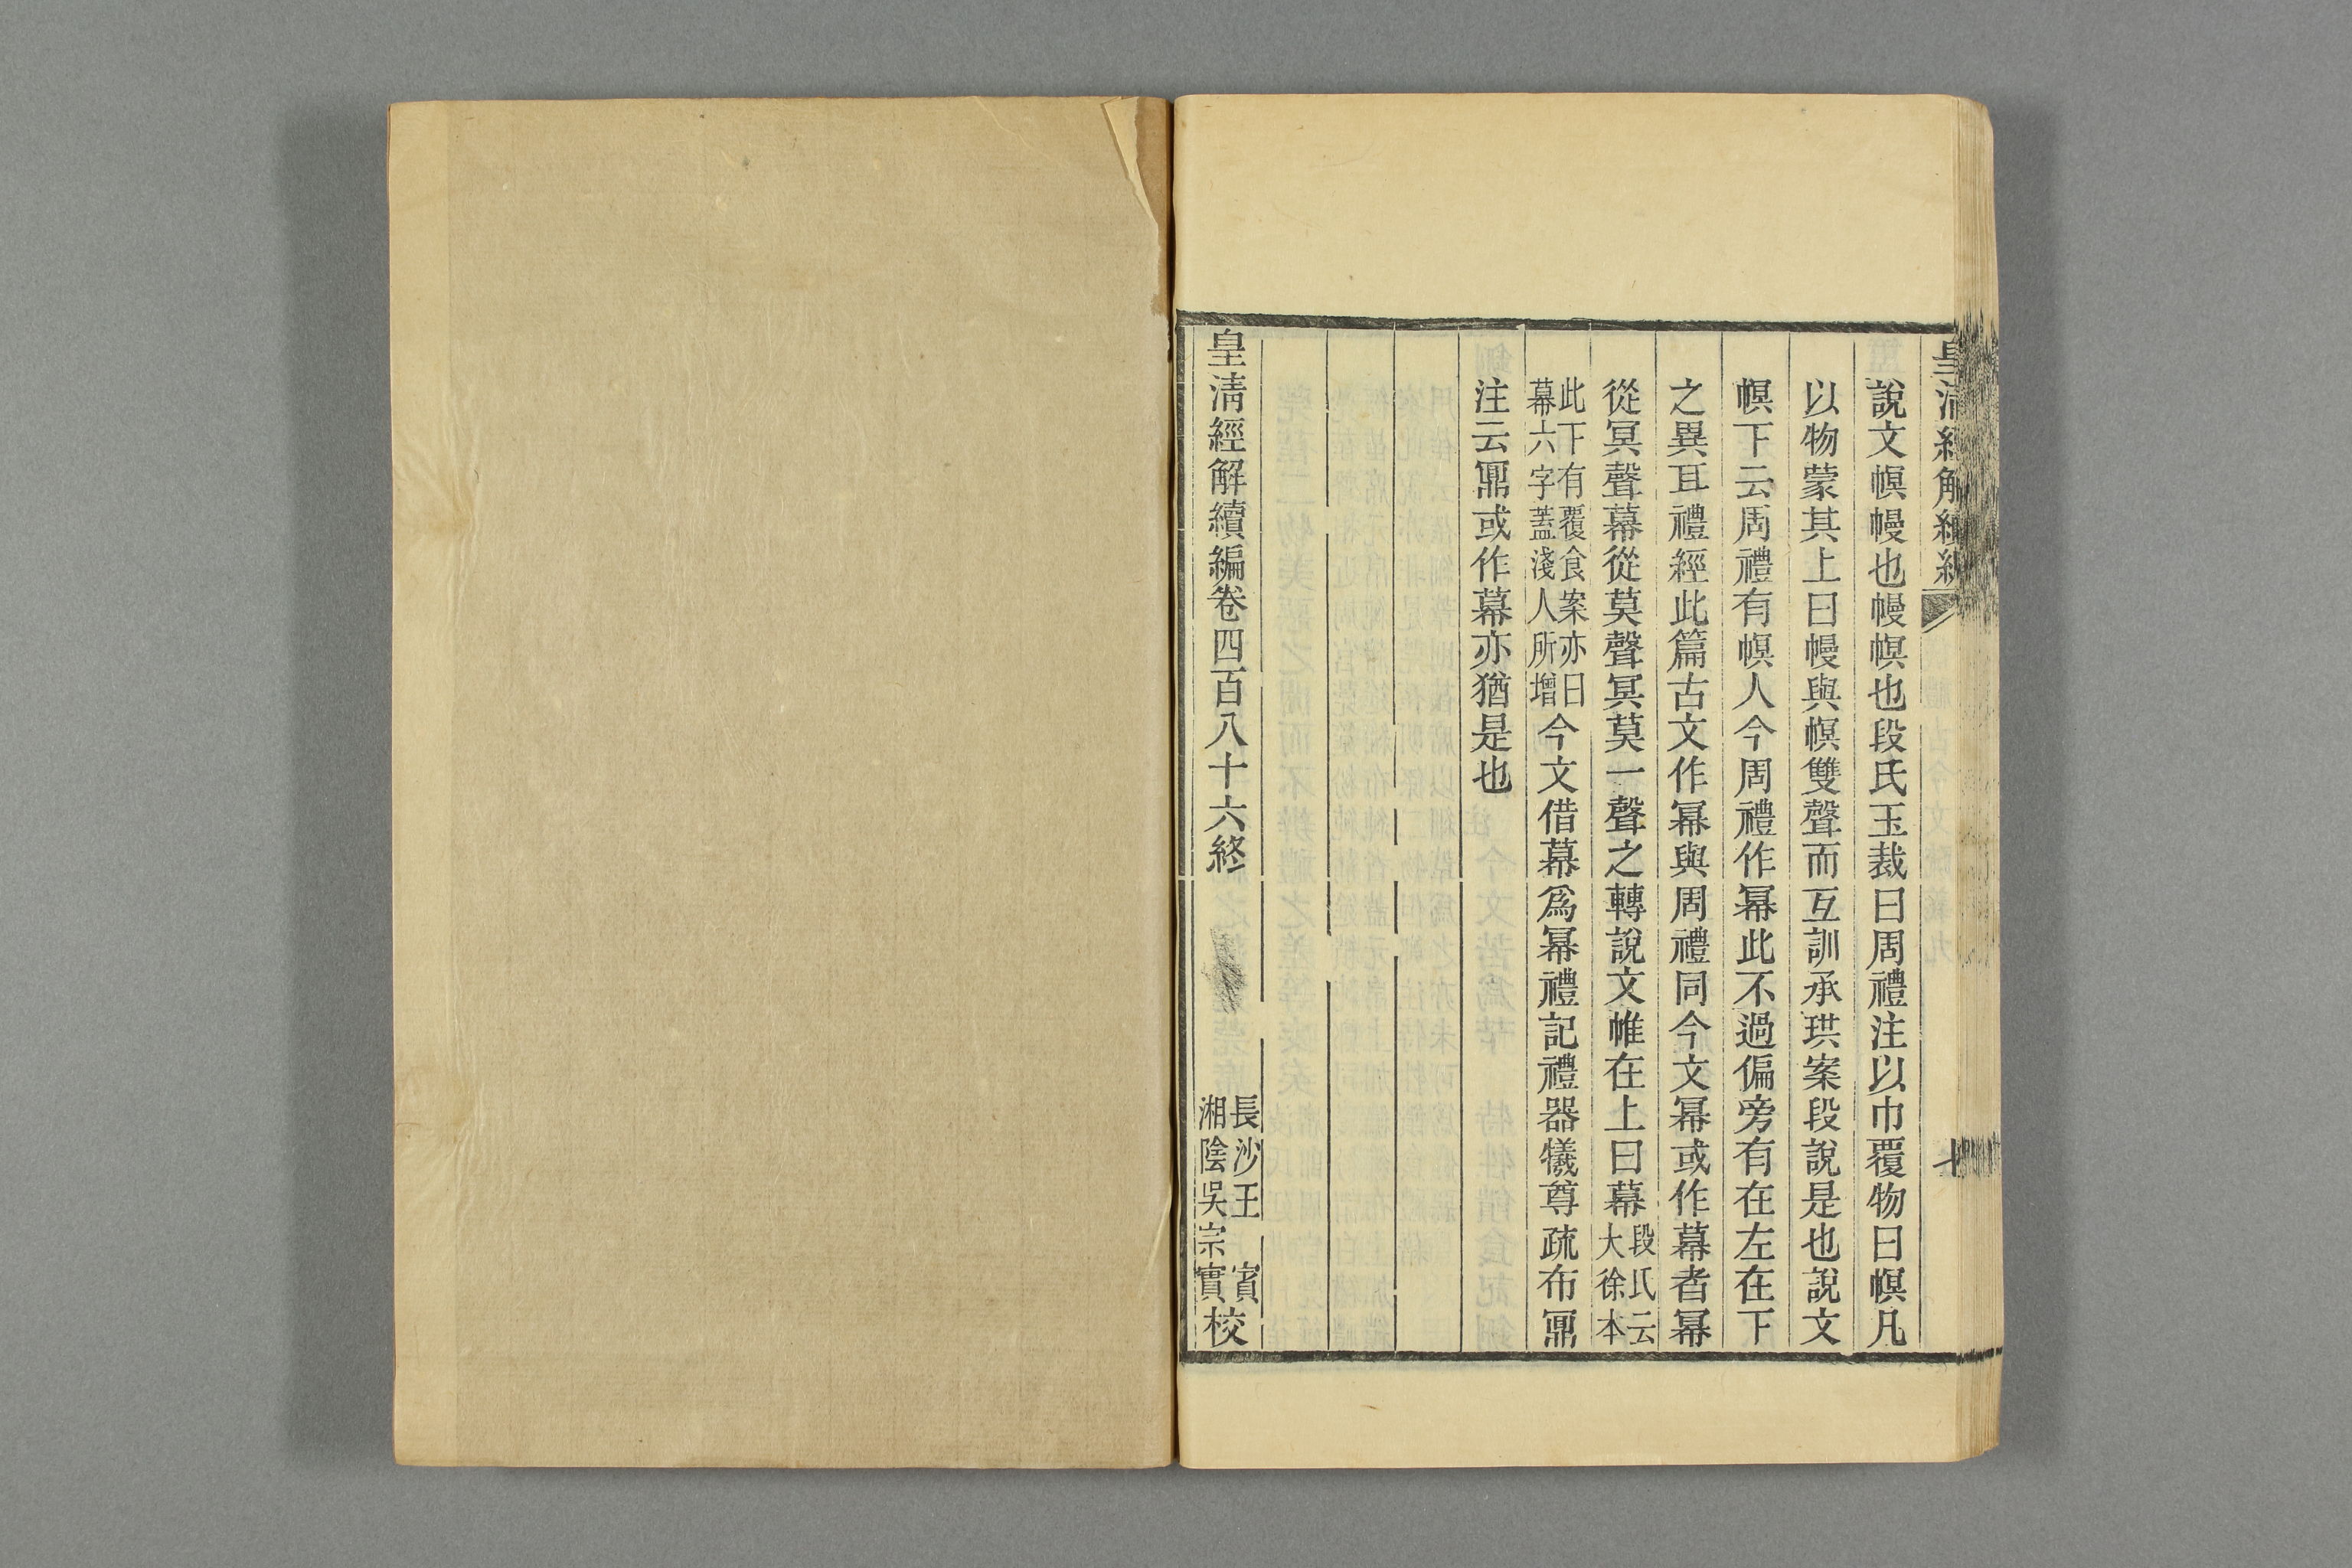 說文幎幔也幔幎也段氏玉裁曰周禮注以巾覆物曰幎凡
以物蒙其上曰幔與幎雙聲而互訓承珙案段說是也說文
幎下云周禮有幎人今周禮作冪此不過偏旁有在左在下
之異耳禮經此篇古文作冪與周禮同今文冪或作幕者冪
從冥聲幕從莫聲冥莫一聲之轉說文帷在上曰幕段氏云大徐本
此下有覆食案亦曰幕六字蓋淺人所增今文借幕爲冪禮記禮器犧尊疏布鼏
注云鼏或作幕亦猶是也
皇清經解續編卷四百八十六終
長沙王賓
湘陰吳宗實校